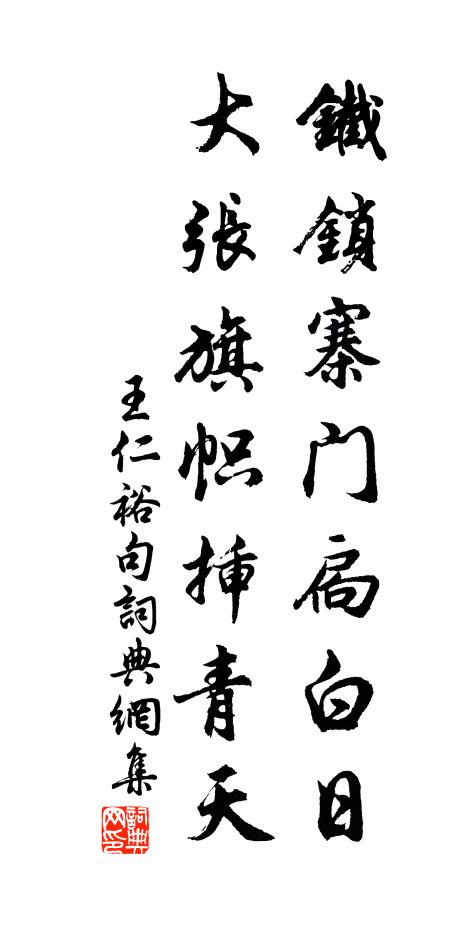 鐵鎖寨門扃白日
大張旗帜揷青天
王仁裕句詞典網集
詞典網印